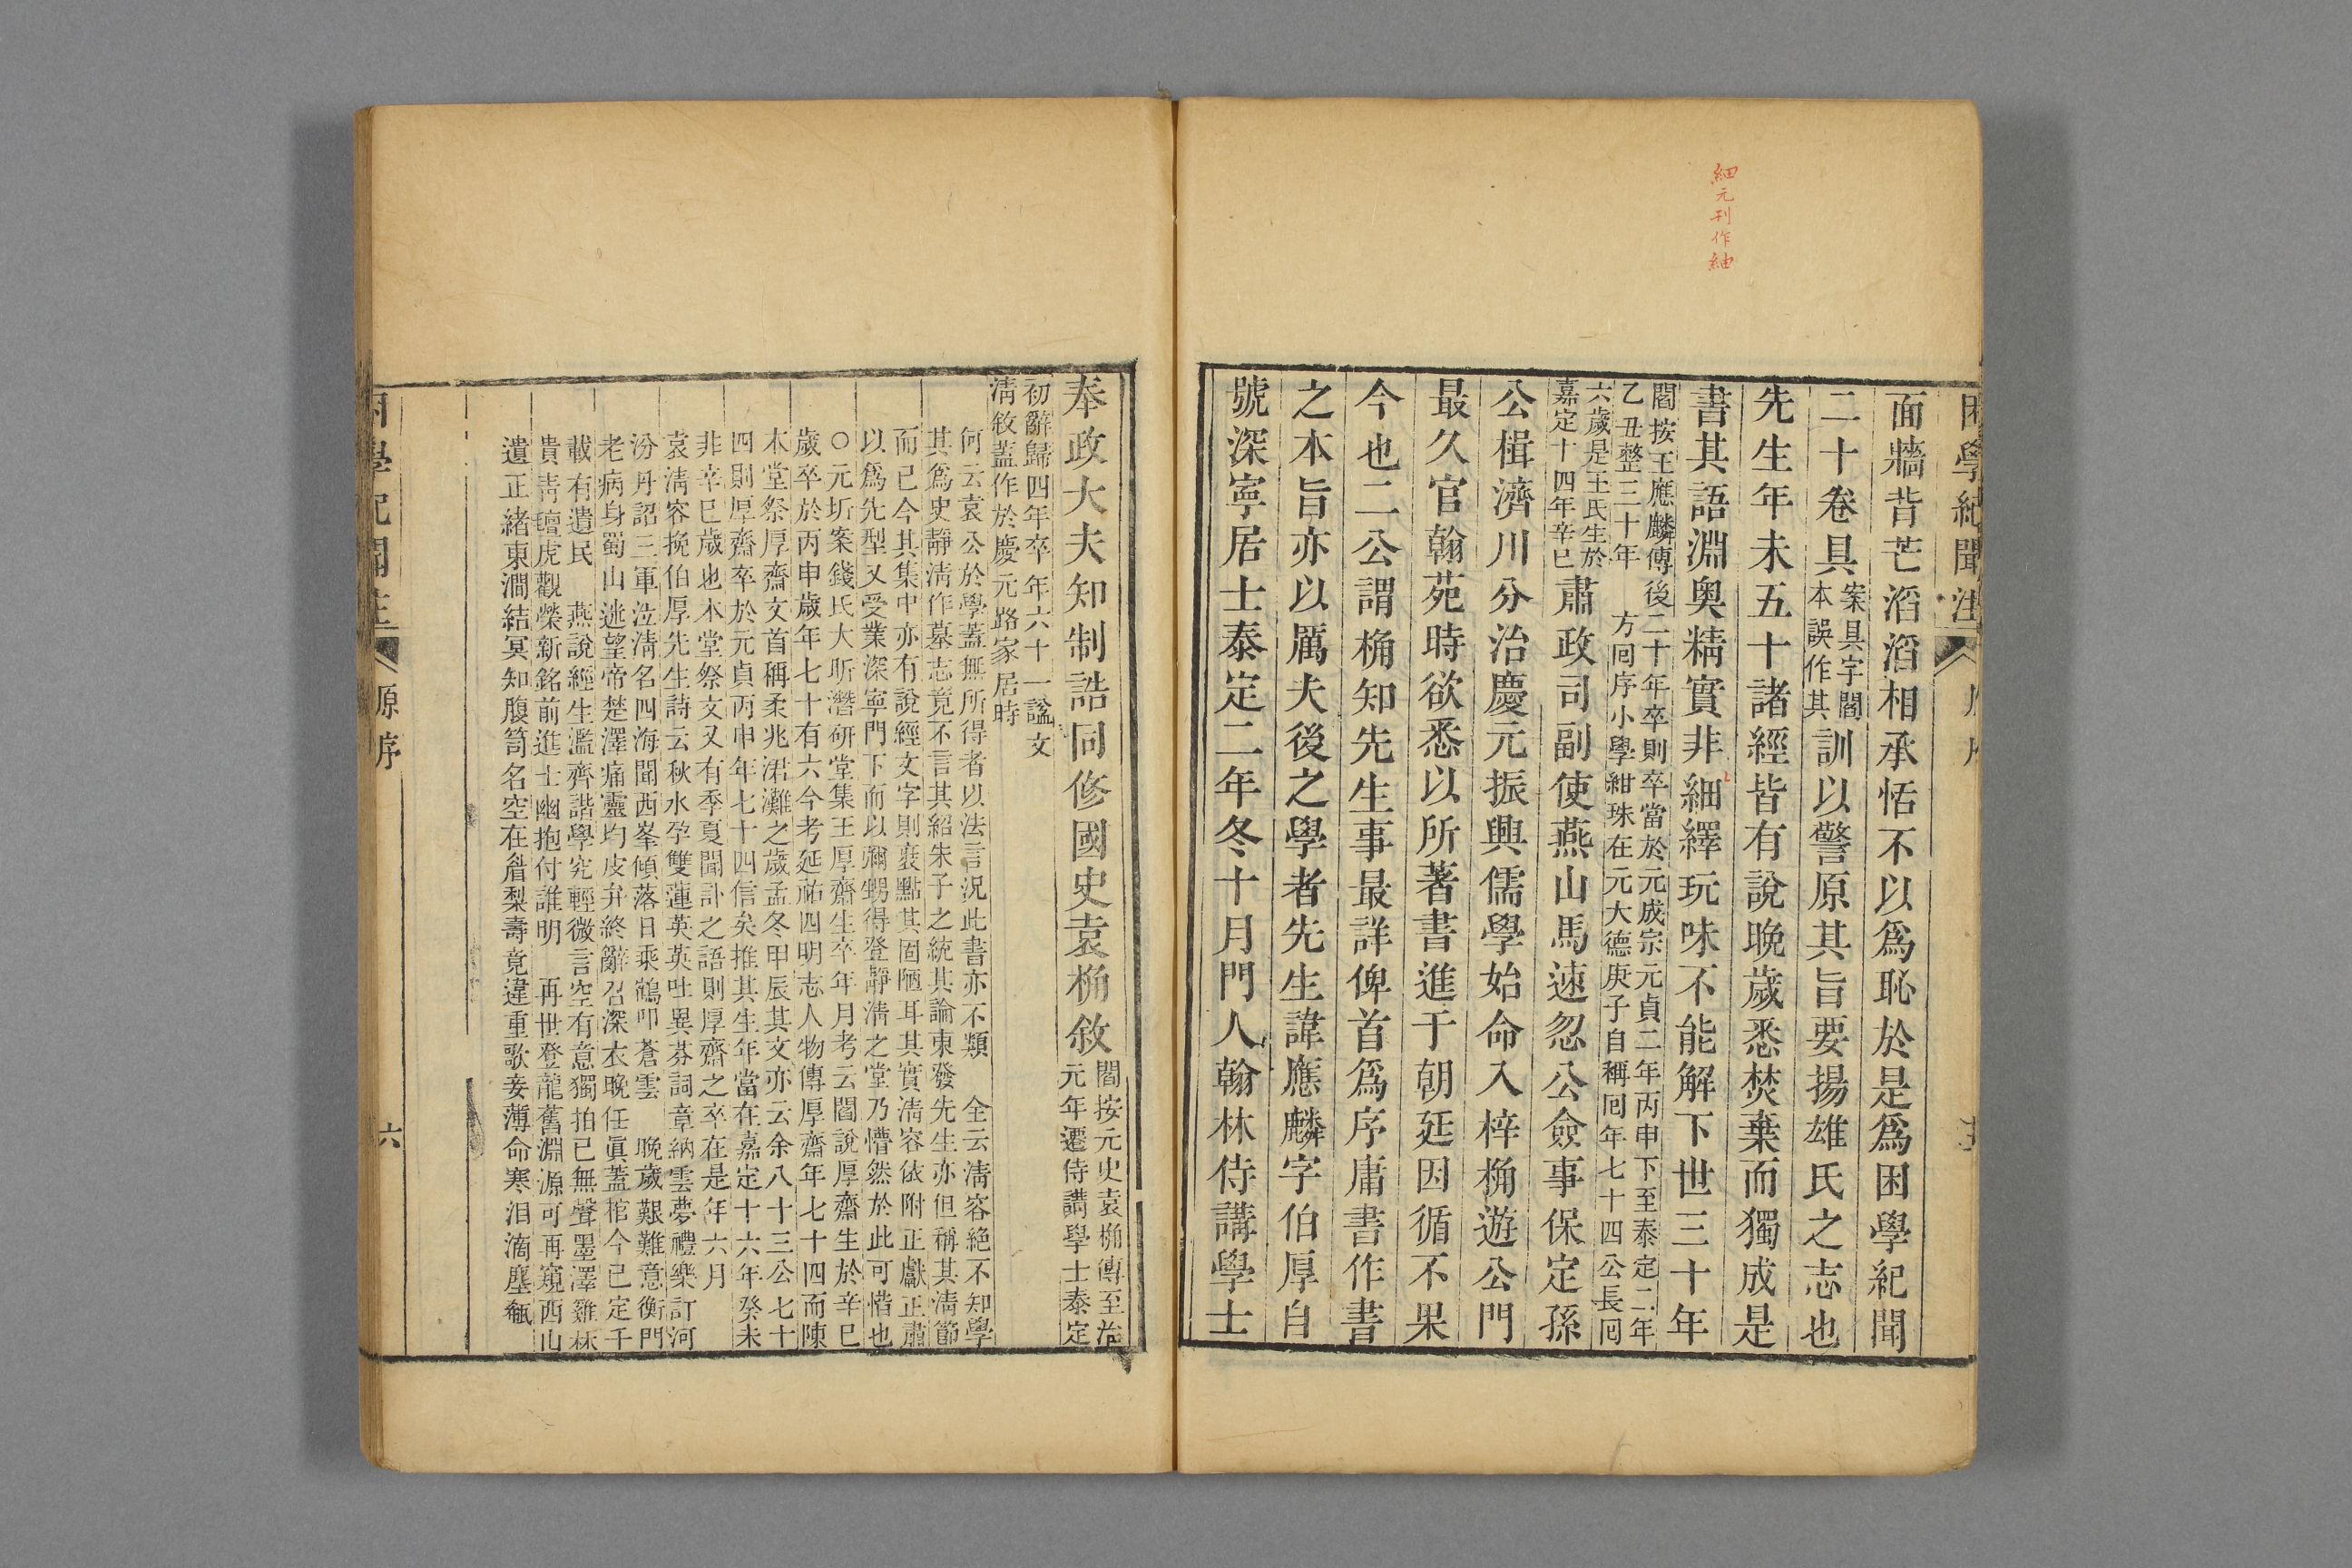 細元刊作紬
困學紀聞注
面牆背芒滔滔相承恬不以爲恥於是爲困學紀聞
二十卷具案具字閻本誤作其訓以警原其旨要揚雄氏之志也
先生年未五十諸經皆有說晚歲悉焚棄而獨成是
書其語淵奧精實非細繹玩味不能解下世三十年
閻按王應麟傳後二十年卒則卒當於元成宗元貞二年丙申下至泰定二年
乙丑整三十年方回序小學紺珠在元大德庚子自稱回年七十四公長回
六歲是王氏生於嘉定十四年辛巳肅政司副使燕山馬速忽公僉事保定孫
公楫濟川分治慶元振興儒學始命入梓桷遊公門
最久官翰苑時欲悉以所著書進于朝延因循不果
今也二公謂桷知先生事最詳俾首爲序庸書作書
之本旨亦以厲夫後之學者先生諱應麟字伯厚自
號深寧居士泰定二年冬十月門人翰林侍講學士
奉政大夫知制誥同修國史袁桷敘閻按元史袁桷傳至治元年遷侍講學士泰定
初辭歸四年卒年六十一諡文
清敘蓋作於慶元路家居時
何云袁公於學蓋無所得者以法言況此書亦不類　全云清容絕不知學
其爲史靜清作墓志竟不言其紹朱子之統其論東發先生亦但稱其清節
而已今其集中亦有說經文字則裒點其固陋耳其實清容依附正獻正肅
以爲先型又受業深寧門下而以彌甥得登靜清之堂乃懵然於此可惜也
〇元圻案錢氏大昕潛研堂集王厚齋生卒年月考云閻說厚齋生於辛巳
歲卒於丙申歲年七十有六今考延祐四明志人物傳厚齋年七十四而陳
本堂祭厚齋文首稱柔兆涒灘之歲孟冬甲辰其文亦云余八十三公七十
四則厚齋卒於元貞丙申年七十四信矣推其生年當在嘉定十六年癸未
非辛巳歲也本堂祭文又有季夏聞訃之語則厚齋之卒在是年六月
袁清容挽伯厚先生詩云秋水孕雙蓮英英吐異芬詞章納雲夢禮樂訂河
汾丹詔三軍泣清名四海聞西峯傾落日乘鶴叩蒼雲　晚歲艱難意衡門
老病身蜀山迷望帝楚澤痛靈均皮弁終辭召深衣晚任眞蓋棺今已定千
載有遺民　燕說經生濫齊諧學究輕微言空有意獨拍已無聲墨澤雞林
貴靑氊虎觀榮新銘前進士幽抱付誰明　再世登龍舊淵源可再窺西山
遺正緒東澗結冥知腹笥名空在眉梨壽竟違重歌妾薄命寒泪滴塵甀
困學紀聞注
原序
六